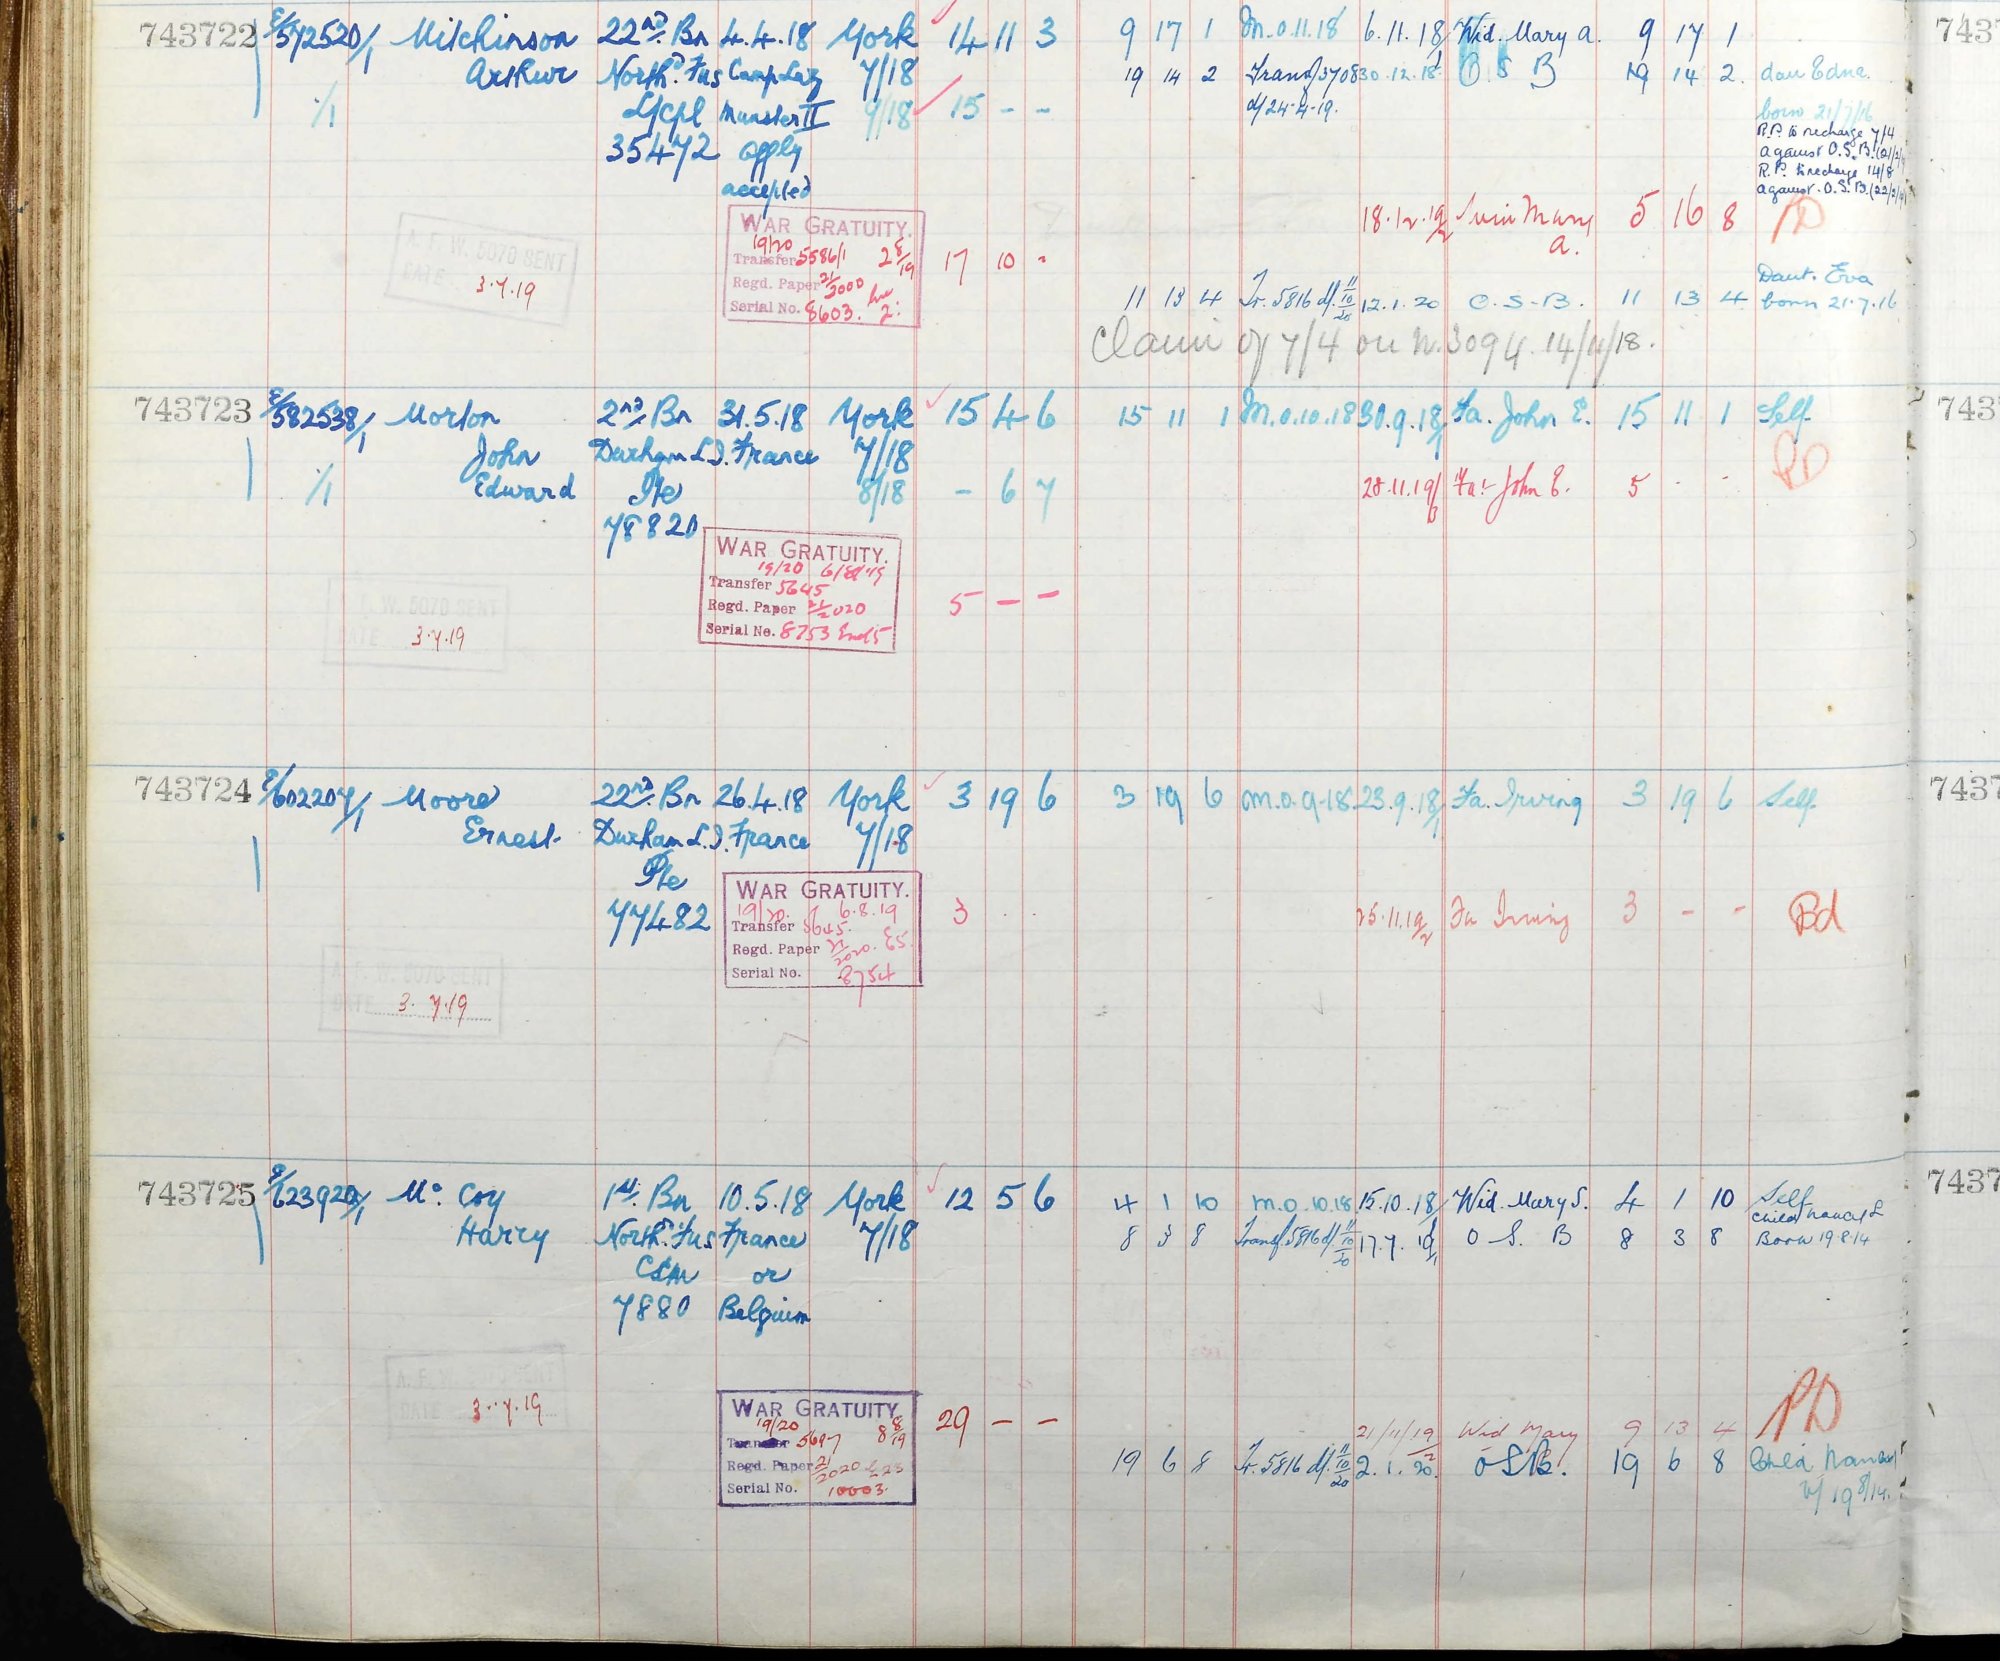 743722 E/572520/1 Mitchinson 22nd. Bn 4.4.18 York 14 11 3 9 17 1 M.O.11.18 6.11.18/1 Wid. Mary A. 9 17 1
Arthur North'd. Fus Camp Laz 7/18 19 14 2 Transf 3708 30.12.18 O S B 19 14 2. dau Edna
1/1 L/Cpl Munster II 9/18 15 - - d/24-4-19. born 21/7/16
35472 apply R.P. to recharge 7/4
accepted against O.S.B.
R.P. to recharge 14/8
against O.S.B.
WAR GRATUITY. 18.12.19/2 Mary A. 5 16 8 PD
A. F. W. 5070 SENT 19/20
DATE 3.7.19 Transfer 5586/1 2 8/19 17 10 -
Regd. Paper 21/3000 Daut. Eva
Serial No. 8603. 11 13 4 Tr. 5816 d/. 11/10/20 12.1.20 O.S.B. 11 13 4 born 21.7.16
Claim of 7/4 on N.3094. 14/11/18.
743723 E/582538/1 Morton 2nd. Bn 31.5.18 York 15 4 6 15 11 1 M.O.10.18 30.9.18/1 Fa. John E. 15 11 1 Self
John Durham L.I. France 7/18 PD
1/1 Edward Pte 8/18 - 6 7 28.11.19 Fa: John E. 5 - -
78820
WAR GRATUITY.
19/20
Transfer 5645
Regd. Paper 21/2020 5 - -
Serial No. 8753 End 5
A. F. W. 5070 SENT
DATE 3.7.19
743724 E/602207/1 Moore 22nd. Bn 26.4.18 York 3 19 6 3 19 6 M.O.9.18 23.9.18/1 Fa. Irving 3 19 6 Self
Ernest. Durham L.I. France 7/18
Pte
77482 WAR GRATUITY. 3 . . 25.11.19/2 Fa Irving 3 - - Pd
19/20. 6.8.19
Transfer 5645.
Regd. Paper 21/2020. E5.
Serial No. 8754
A. F. W. 5070 SENT
DATE 3.7.19
743725 E/623920/1 Mc Coy 1st. Bn 10.5.18 York 12 5 6 4 1 10 M.O.10.18 15.10.18/1 Wid. Mary S. 4 1 10 Self
Harry North'd. Fus France 7/18 8 3 8 Transf. 5816 d/. 11/10/20 17.7.19/1 O S. B 8 3 8 Child Nancy L
Born 19.8.14
CSM or
7880 Belgium
A. F. W. 5070 SENT
DATE 3.7.19
WAR GRATUITY. 29 - - 21/11/19/2 Wid Mary 9 13 4 PD
19/20
Transfer 5697 8 8/19
Regd. Paper 21/2020 19 6 8 Tr. 5816 d/. 11/10/20 2.1.20. O.S.B. 19 6 8 Child Nancy
Serial No. 10003. b/ 19 8/14.
743
743
743
743